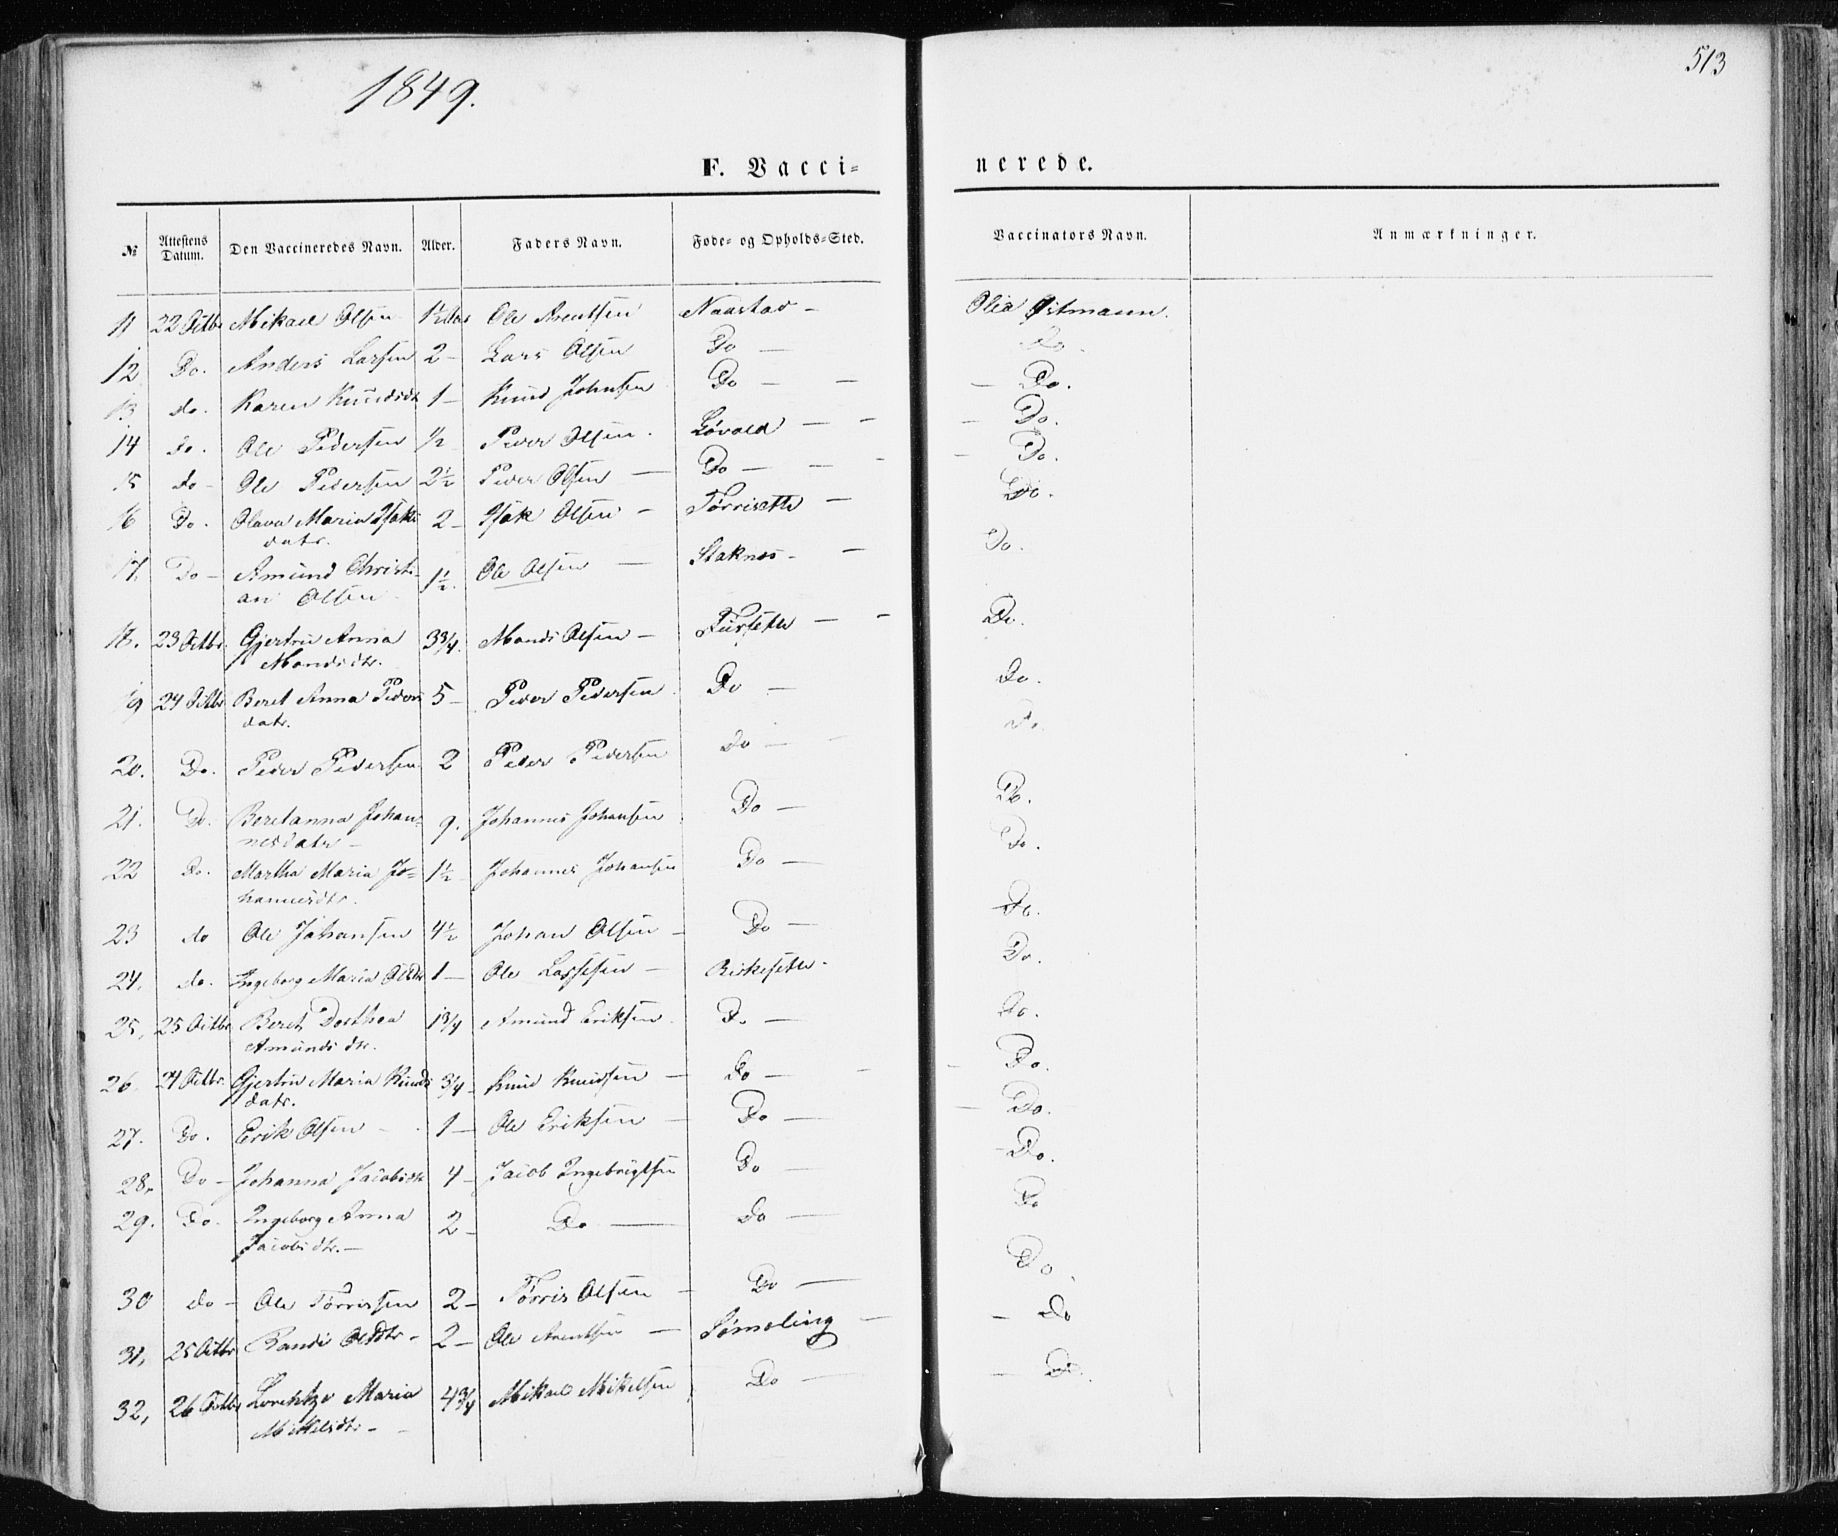 1849.
513
F. Vacci-
nerede.
№ Attestens Datum. Den Vaccineredes Navn. Alder. Faders Navn. Føde- og Opholds-Sted. Vaccinators Navn. Anmærkninger.
11 22 Octbr Mikael Olsen 1½ Ole Arentsen Naastad - Olea Østmann.
12 Do. Anders Larsen 2 - Lars Olsen Do - Do.
13 do. Karen Knudsdtr 1 - Knud Johnsen Do - - - Do.
14 do. Ole Pedersen ½ Peder Olsen. Løvold - - - Do.
15 do - Ole Pedersen 2½ Peder Olsen - Do - - - - Do.
16 Do. Olava Maria Isaks 2 - Isak Olsen - Tørrisette - Do.
datr.
17. Do - Amund Christi- 1½. Ole Olsen - Staknes - - Do.
an Olsen
18. 23 Octbr. Gjertru Anna 3¾. Monds Olsen - Fursette - - Do.
Monds dtr.
19 24 Octbr Beret Anna Peders 5 - Peder Pedersen Do - Do.
datr.
20. Do. Peder Pedersen 2 Peder Pedersen Do - Do.
21. Do. Beretanna Johan- 9. Johannes Johansen Do - Do.
nesdatr -
22 Do. Martha Maria Jo- 1½ - Johannes Johansen Do - Do.
hannesdtr.
23 do Ole Johansen 4½ Johan Olsen - Do - Do.
24. do. Ingeborg Maria Olsdtr 1 - Ole Lassesen - Birkesette - Do.
25. 25 Octbr Beret Dorthea 1¾ Amund Eriksen Do - Do.
Amunds dtr.
26. 24 Octbr. Gjertru Maria Knuds ¾ - Knud Knudsen - Do - - - Do.
datr.
27. Do. Erik Olsen - 1 - Ole Eriksen - Do - - Do.
28. Do - Johanna Jacobsdtr 4 - Jacob Ingebrigtsen Do - - Do.
29. Do. Ingeborg Anna 2 - Do - Do - Do
Jacobsdtr. -
30 do - Ole Tørrissen 2 - Tørris Olsen - Do - Do.
31. 25 Octbr Randi Olsdtr - 2 - Ole Arentsen - Sømoling - - Do
32. 26 Octbr Lorentze Maria 4¾ Mikael Mikelsen Do - - Do.
Mikkelsdtr -